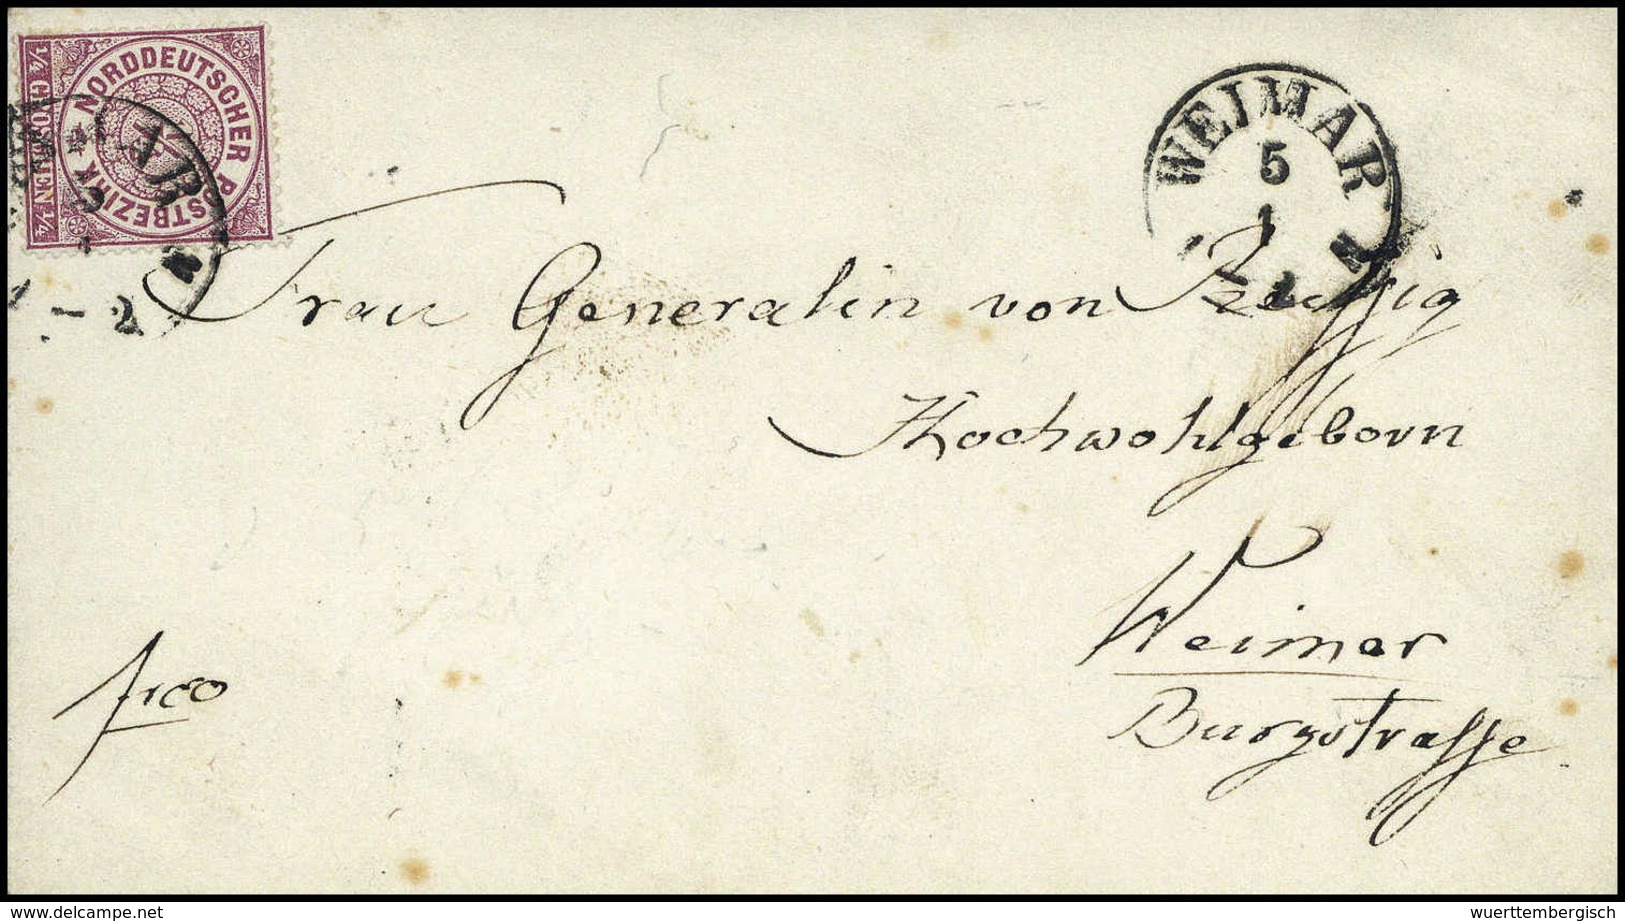 1/4 GROSCHEN 1/4
NORDDEUTSCHER POSTBEZIRK
1/4
AR
2
WEIMAR
5
1
Frau Generalin von
Hochwohlgeborn
Weimar
Burgstrasse
frco
delcampe.net
wuerttembergisch